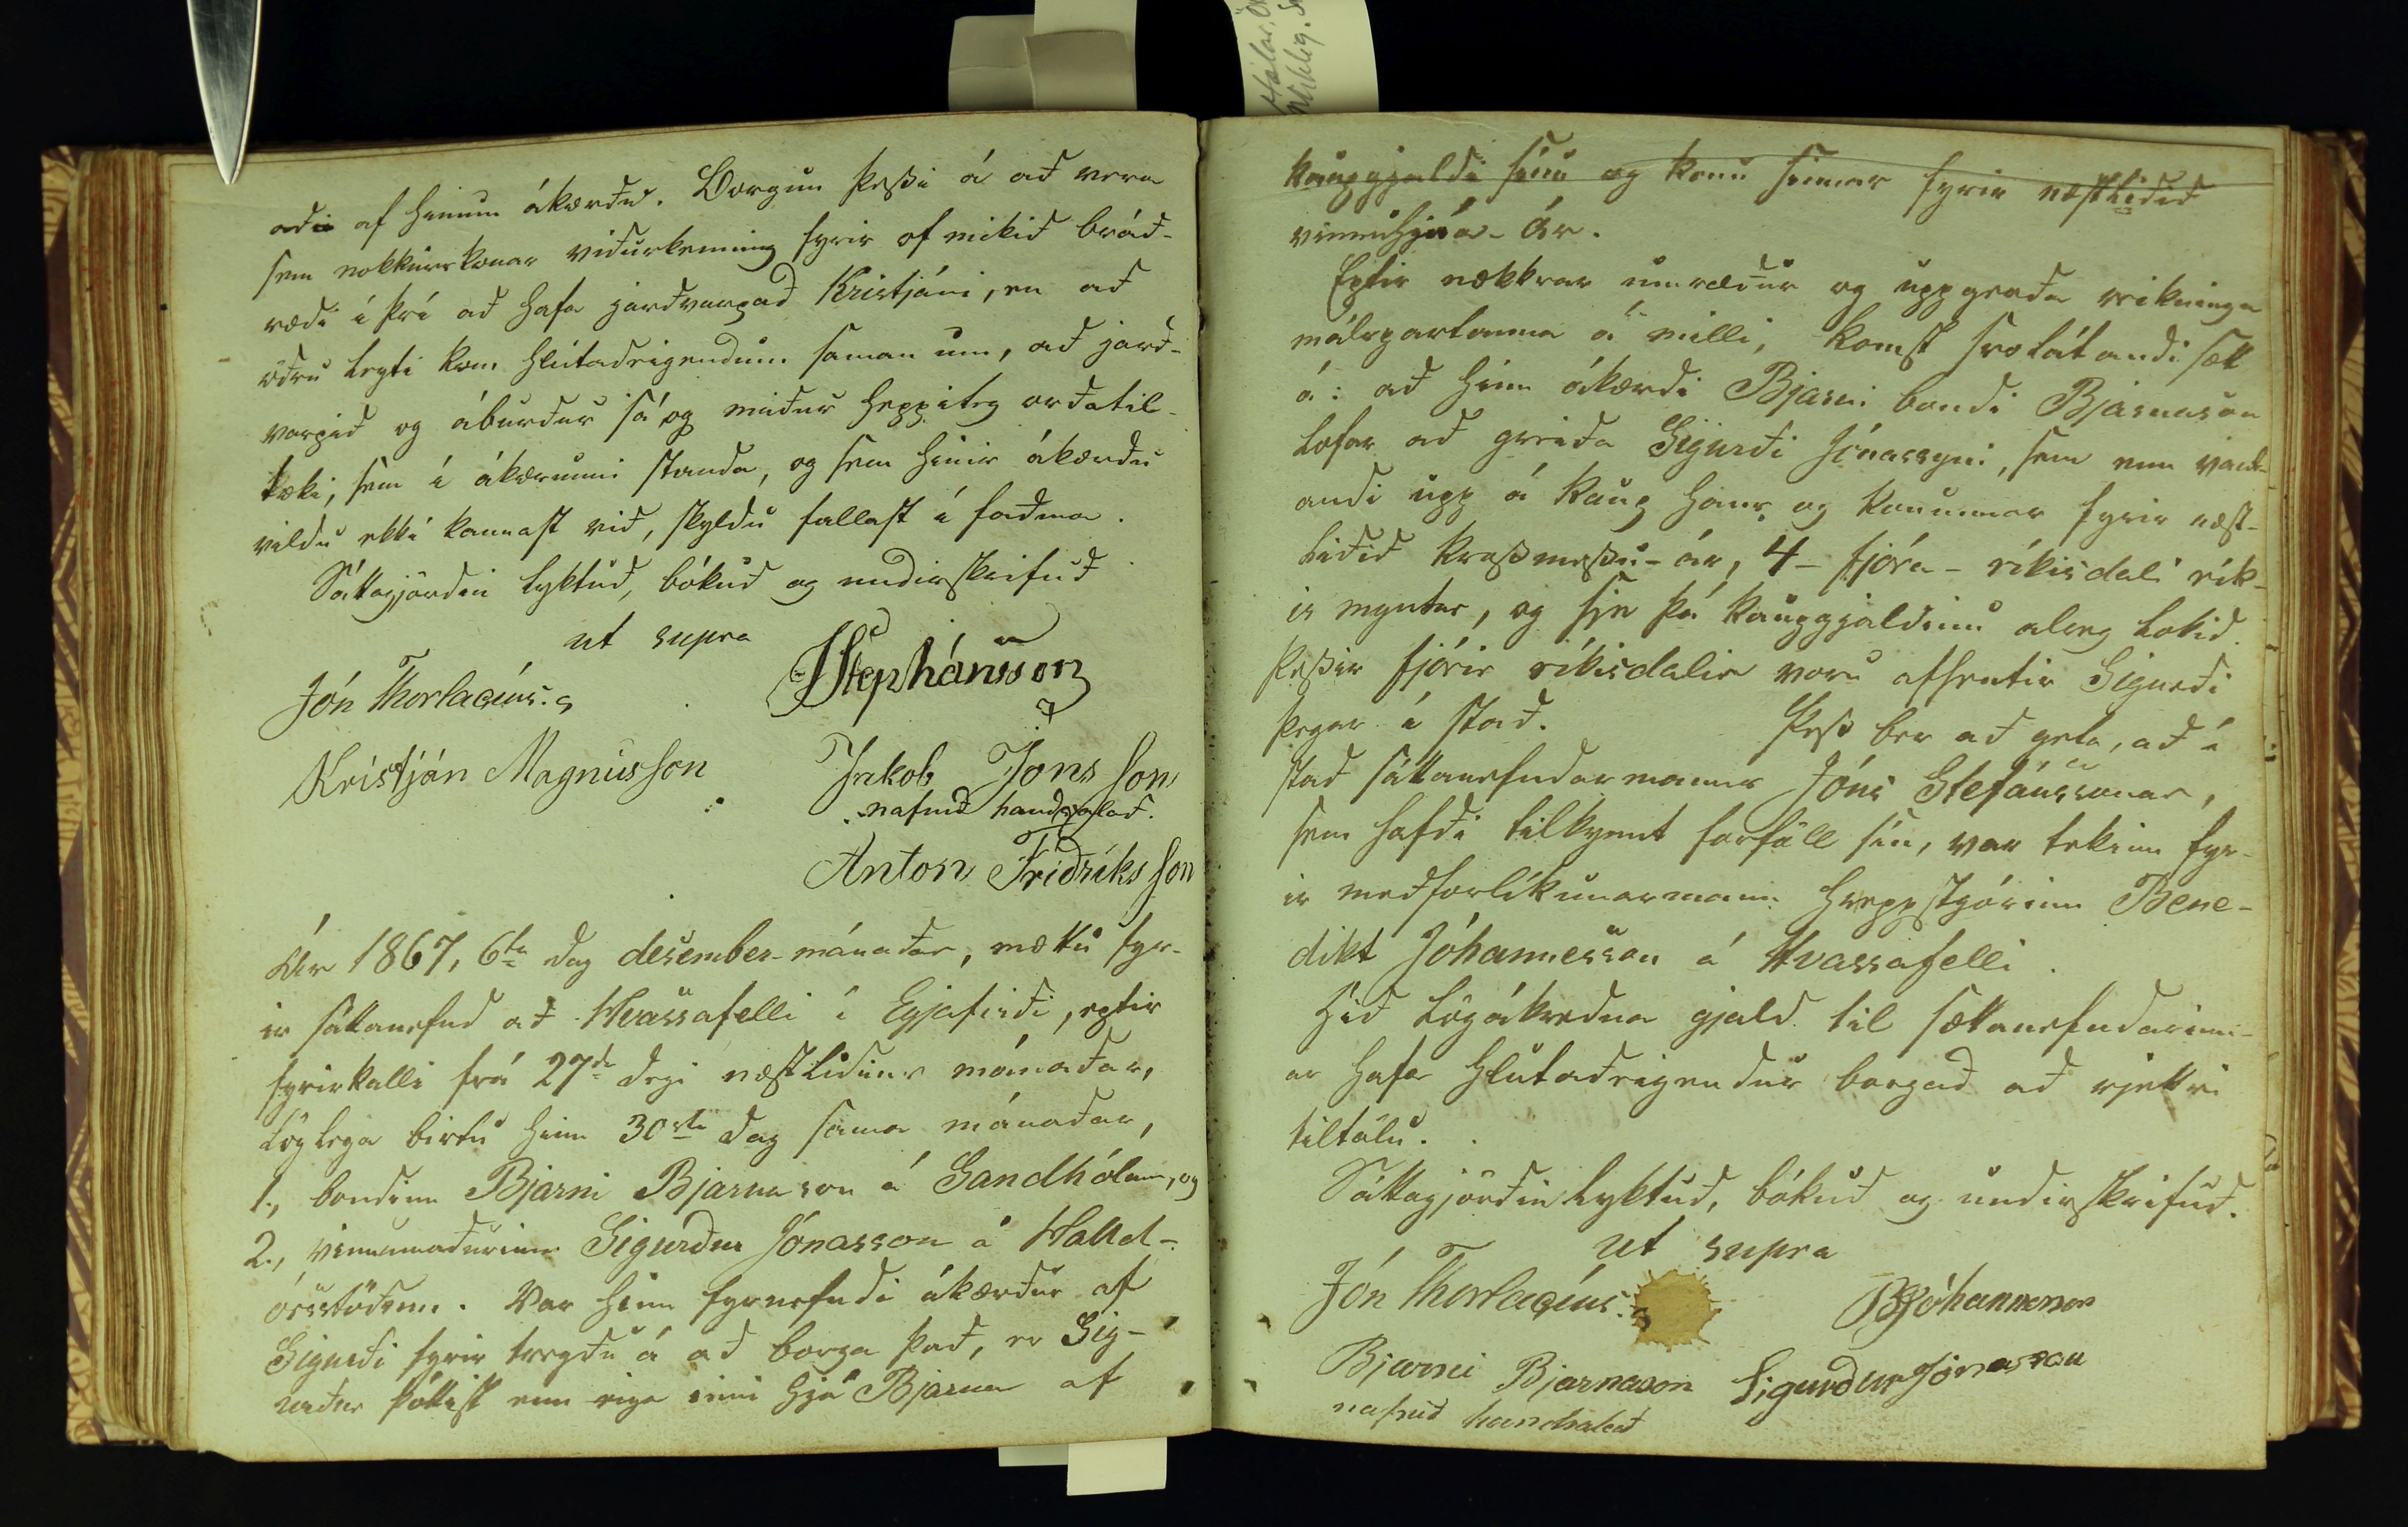 aði af hinum ákærðu. Borgun þessi á að vera
sem nokkurskonar viðurkenning fyrir of mikið bráð-
ræði í því að hafa jarðvarpað Kristjáni, en að
öðru leyti kom hlutaðeigendum saman um, að jarð-
varpið og áburður sá og miður heppileg orðatil-
tæki, sem í ákærunni standa, og sem hinir ákærðu
vildu ekki kannast við, skyldu fallast í faðma.
Sáttagjörðin lyktuð, bókuð og undirskrifuð
ut supra
Jón Thorlacíus.
JStephánsson
Kristján Magnússon
Jakob Jónsson
nafnið handsalað.
Anton Friðriksson
Ár 1867, 6ta dag desember-mánaðar, mættu fyr-
ir sáttanefnd að Hvassafelli í Eyjafirði, eptir
fyrirkalli frá 27da degi næstliðins mánaðar,
löglega birtu hinn 30sta dag sama mánaðar,
1., bóndinn Bjarni Bjarnason á Sandhólum, og
2., vinnumaðurinn Sigurður Jónasson á Halld-
órsstöðum. Var hinn fyrnefndi ákærður af
Sigurði fyrir tregðu á að borga það, er Sig-
urður þóttist enn eiga inni hjá Bjarna af
kaupgjaldi sínu og konu sinnar fyrir næstliðið
vinnuhjúa-ár.
Eptir nokkrar umræður og uppgerða reikninga
málspartanna á milli, komst svolátandi sátt
á: að hinn ákærði Bjarni bóndi Bjarnason
lofar að greiða Sigurði Jónassyni, sem enn vant-
andi upp á kaup hans og konunnar fyrir næst-
liðið krossmessu-ár, 4 - fjóra - ríkisdali rík-
is myntar, og sje þá kaupgjaldinu alveg lokið.
Þessir fjórir ríkisdalir voru afhentir Sigurði
þegar í stað. Þess ber að geta, að í
stað sáttanefndarmanns Jóns Stefánssonar,
sem hafði tilkynnt forföll sín, var tekinn fyr-
ir meðforlíkunarmann hreppstjórinn Bene-
dikt Jóhannesson á Hvassafelli.
Hið lögákveðna gjald til sáttanefndarinn-
ar hafa hlutaðeigendur borgað að rjettri
tiltölu.
Sáttagjörðin lyktuð, bókuð og undirskrifuð.
ut supra
Jón Thorlacíus.
BJóhannesson
Bjarni Bjarnason Sigurður Jónasson
nafnið handsalað